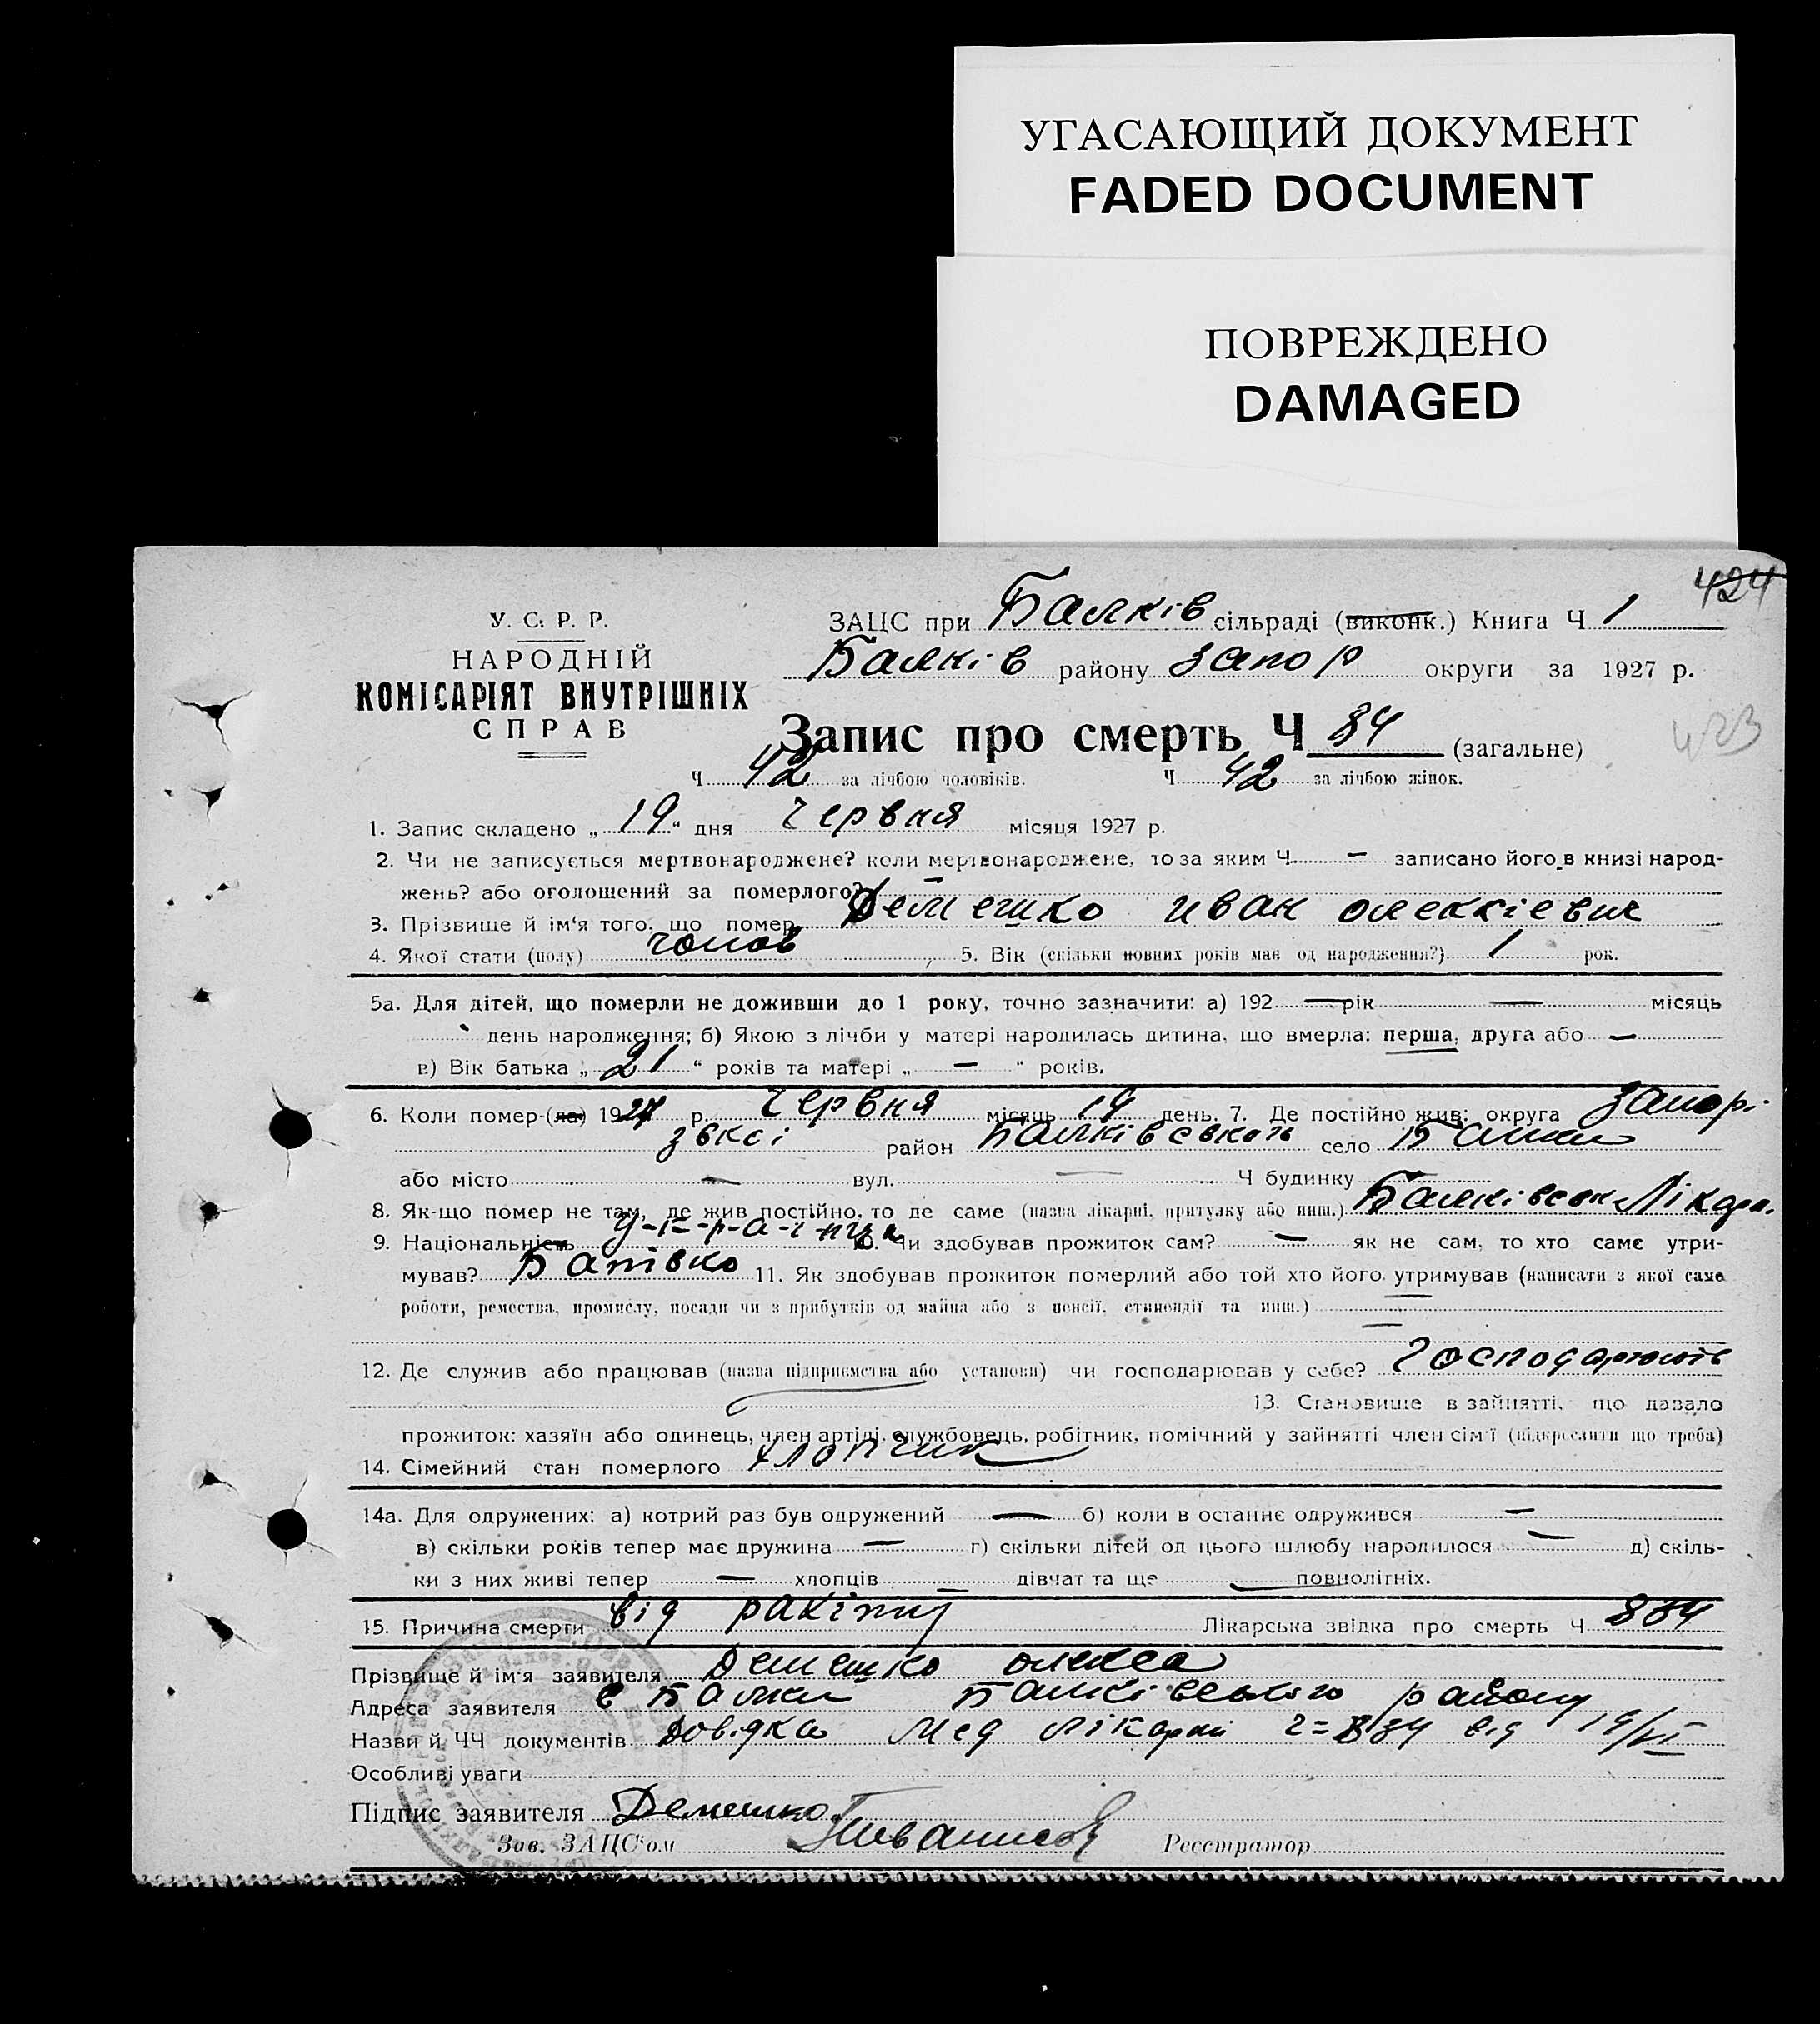 УГАСАЮЩИЙ ДОКУМЕНТ
FADED DOCUMENT
ПОВРЕЖДЕНО
DAMAGED
424
У. С. Р. Р.
НАРОДНІЙ
КОМІСАРІЯТ ВНУТРІШНІХ
СПРАВ
ЗАЦС при Балків сільраді (виконк.) Книга Ч 1
Балків району Запор округи за 1927 р.
Запис про смерть Ч 84 (загальне)
423
Ч 42 за лічбою чоловіків. Ч 42 за лічбою жінок.
1. Запис складено „ 19 “ дня червня місяця 1927 р.
2. Чи не записується мертвонароджене? коли мертвонароджене, то за яким Ч — записано його в книзі народ-
жень? або оголошений за померлого? —
3. Прізвище й ім'я того, що помер Демешко Иван
4. Якої стати (полу) чолов 5. Вік (скільки повних років має од народження?) 1 рок.
5а. Для дітей, що померли не доживши до 1 року, точно зазначити: а) 192 — рік — місяць
день народження; б) Якою з лічби у матері народилась дитина, що вмерла: перша, друга або —
в) Вік батька „ 21 “ років та матері „ — “ років.
6. Коли помер-(ла) 1927 р. червня місяць 19 день. 7. Де постійно жив: округа Запорі-
зьксі район село Балки
або місто — вул. — Ч будинку
8. Як-що помер не там, де жив постійно, то де саме (назва лікарні, притулку або инш.) Балківськ Лікарн.
9. Національність у-к-р-а-ї-нец 10. Чи здобував прожиток сам? — як не сам, то хто саме утри-
мував? Батівко 11. Як здобував прожиток померлий або той хто його утримував (написати з якої саме
роботи, ремества, промислу, посади чи з прибутків од майна або з пенсії, стипендії та инш.) —
—
12. Де служив або працював (назва підприємства або установи) чи господарював у себе?
13. Становище в зайнятті, що давало
прожиток: хазяїн або одинець, член артілі, службовець, робітник, помічний у зайнятті член сім'ї (підкреслити що треба)
14. Сімейний стан померлого хлопчик
14а. Для одружених: а) котрий раз був одружений — б) коли в останнє одружився —
в) скільки років тепер має дружина — г) скільки дітей од цього шлюбу народилося — д) скіль-
ки з них живі тепер — хлопців — дівчат та ще — повнолітніх.
15. Причина смерти від рахіту Лікарська звідка про смерть Ч 884
Прізвище й ім'я заявителя Демешко Олекса
Адреса заявителя с Балки Балківського району
Назви й ЧЧ документів Довідка Мед лікарні від 19/VI
Особливі уваги
Підпис заявителя Демешко
Зав. ЗАЦС'ом Реєстратор